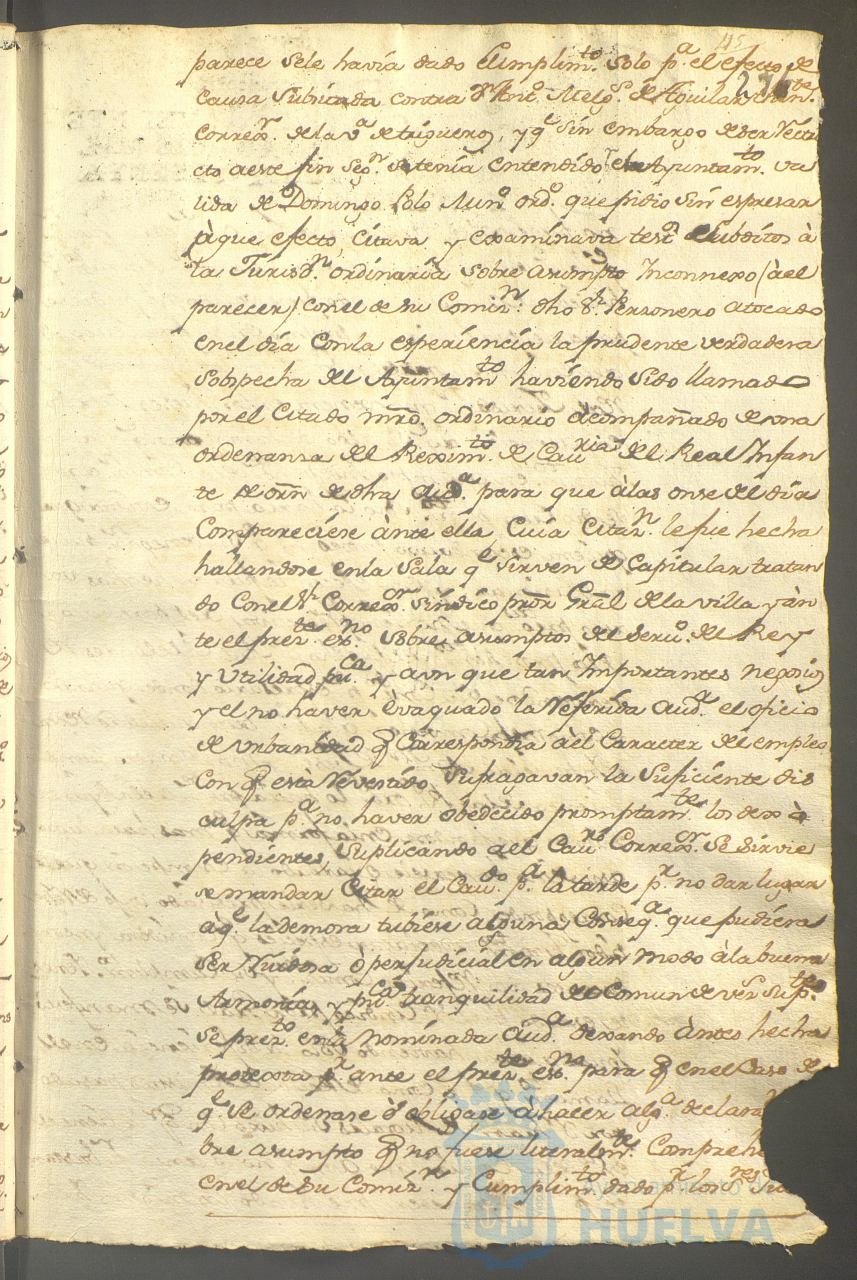 parece sele havía dado Cumplimto. Solo pa. el efecto de
Causa Subsitada contra Dn. Anto. Melgo. de Aguilar Thente.
Correxr. de la va. de trigueros, y qe. sin embargo de ser
cto a este fin Segn. se tenía entendido el Ayuntamto. va
lida de Domingo Polo Muno. ordo. que pidio sin espresar
à que efecto, Citava y examínava testos. Subditos à
la Jurisdn. ordinaria sobre asumpto Inconnexo (à el
parecer) con el de su Comizn. dho Sr. Personero a tocado
en el día Con la esperíencía la prudente verdadera
Sobspecha del Ayuntamto. haviéndo Sido llamado
por el Citado mro. ordinario acompañado de una
ordenansa del Reximto. de Cauría. del Real Infan
te de orn. de dha Auda. para que à las onse del día
Comparecíese ànte ella, Cuía Citazn. le fue hecha
hallandose en la Sala qe. sirven de Capitular tratan
do Con el Sr. Correxor. síndico pror. Gral. de la villa y àn
te el preste. esno. sobre asumptos del seruo. del Rey
y Utilidad puca. y aun que tan Importantes negosios
y el no haver èvaquado la Referída Auda. el oficio
de Urbanidad q Correspondía à el Caracter del empleo
Con q està Revestído, Sufragavan la Sufíciente dis
culpa pa. no haver obedecido promptamte. los dexò
pendientes, Suplicando à el Cauro. Correxor. Se sirvie
se mandar Citar el Caudo. pa. la tarde pr. no dar lugar
à qe. la demora tubiese alguna Conseqa. que pudíera
ser Ruidosa ò perjudicíal en algun modo à la buena
Armonía y puca. tranquilidad del Comun de
Se prezto. en la nominada Auda. dexando àntes hecha
protexta pr. ante el preste. esno. para q en el Caso de
qe. se ordenase ò obligase à hacer alga. declara
bre asumpto q no fuese literalmte. Compreh
en el de su Comizn. y Cumplimto. dado pr. los
Ayuntamiento de
HUELVA